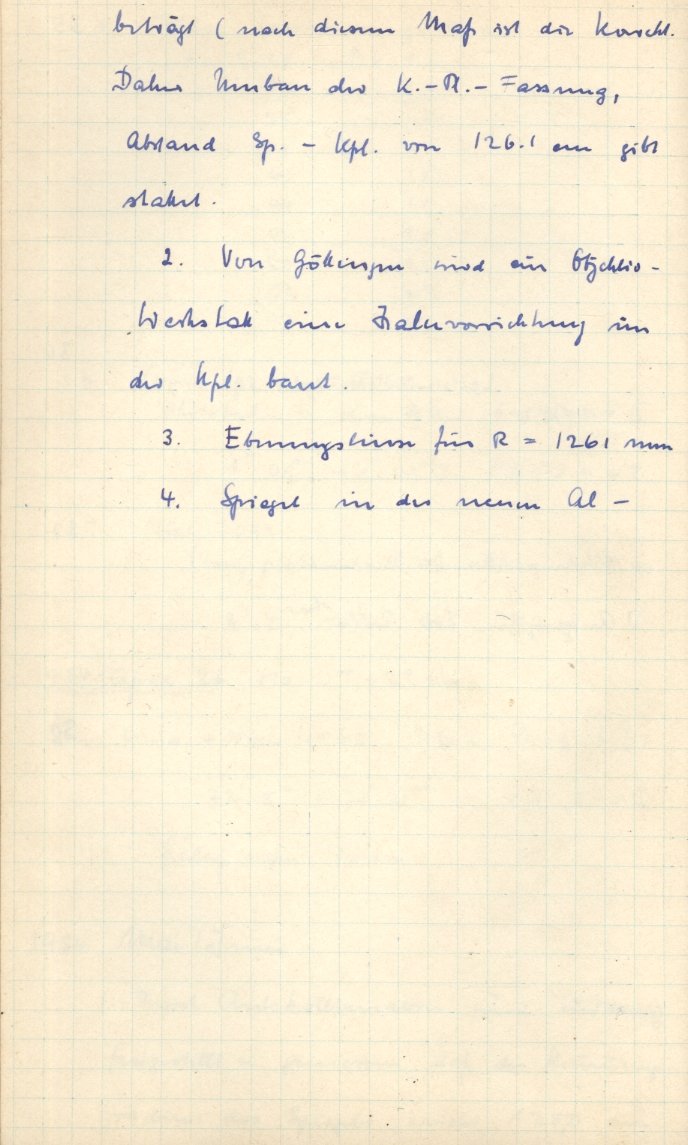 beträgt (nach diesem Maß ist die
Daher Umbau der K.-Pl.-Fassung,
Abstand Sp. - Kpl. von 126.1 cm gibt
2. Von Göttingen wird ein
Werkstatt eine vorrichtung im
der Kpl. baut.
3. Ebnungslinse für R = 1261 mm
4. Spiegel in der neuen Al -